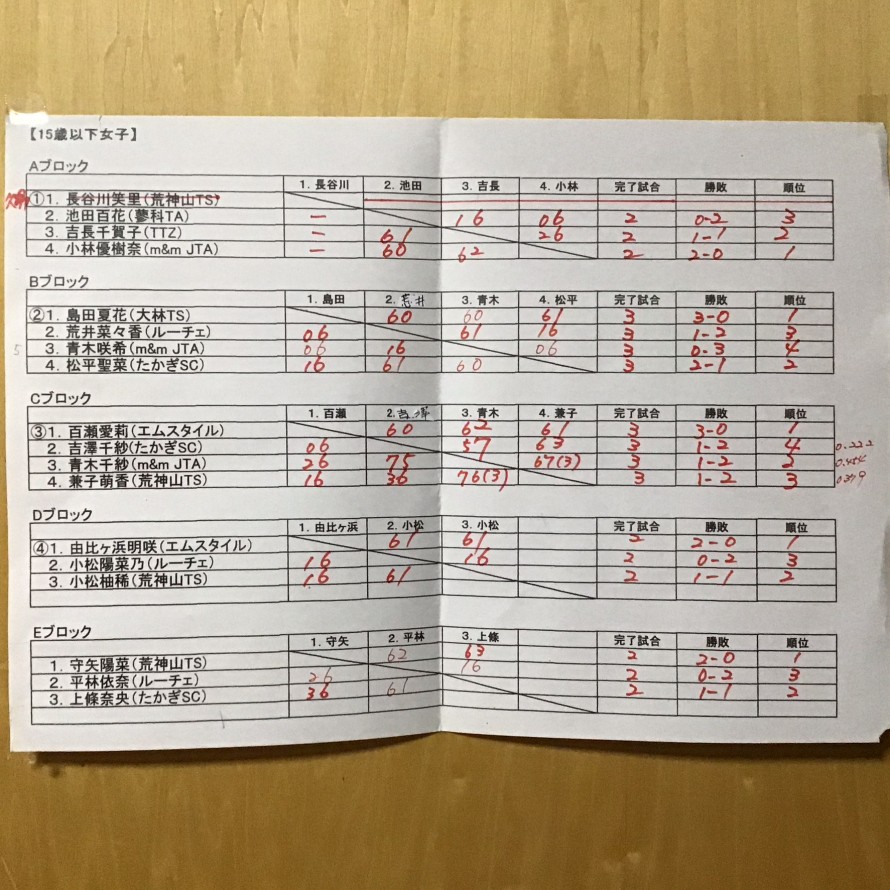 【15歳以下女子】
Aブロック
1. 長谷川 2. 池田 3. 吉長 4. 小林 完了試合 勝敗 順位
①1. 長谷川笑里(荒神山TS)
2. 池田百花(蓼科TA) ー 16 06 2 0-2 3
3. 吉長千賀子(TTZ) ー 61 26 2 1-1 2
4. 小林優樹奈(m&m JTA) ー 60 62 2 2-0 1
Bブロック
1. 島田 2. 荒井 3. 青木 4. 松平 完了試合 勝敗 順位
②1. 島田夏花(大林TS) 60 60 61 3 3-0 1
2. 荒井菜々香(ルーチェ) 06 61 16 3 1-2 3
5 3. 青木咲希(m&m JTA) 06 16 06 3 0-3 4
4. 松平聖菜(たかぎSC) 16 61 60 3 2-1 2
Cブロック
1. 百瀬 2. 吉澤 3. 青木 4. 兼子 完了試合 勝敗 順位
③1. 百瀬愛莉(エムスタイル) 60 62 61 3 3-0 1
2. 吉澤千紗(たかぎSC) 06 57 63 3 1-2 4 0.222
3. 青木千紗(m&m JTA) 26 75 67(3) 3 1-2 2 0.454
4. 兼子萌香(荒神山TS) 16 36 76(3) 3 1-2 3
Dブロック
1. 由比ヶ浜 2. 小松 3. 小松 完了試合 勝敗 順位
④1. 由比ヶ浜明咲(エムスタイル) 61 61 2 2-0 1
2. 小松陽菜乃(ルーチェ) 16 16 2 0-2 3
3. 小松柚稀(荒神山TS) 16 61 2 1-1 2
Eブロック
1. 守矢 2. 平林 3. 上條 完了試合 勝敗 順位
1. 守矢陽菜(荒神山TS) 62 63 2 2-0 1
2. 平林依奈(ルーチェ) 26 16 2 0-2 3
3. 上條奈央(たかぎSC) 36 61 2 1-1 2